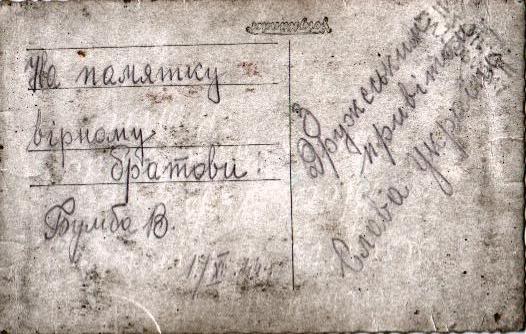 На памятку
вірному
братови!
Бумба В.
17 XI. 44 г.
З
Дружським
привітом
Слава Україні